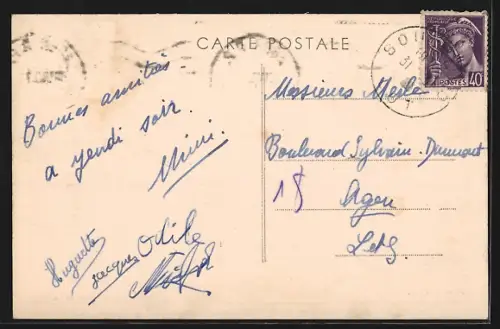 CARTE POSTALE
Bonnes amitiés
a yendi soir.
Mimi.
Huguette
Jacques
Odile
Messieurs Mesle
Boulevard Sylvain-Dumont
18
Agen
L&G
POSTES 40